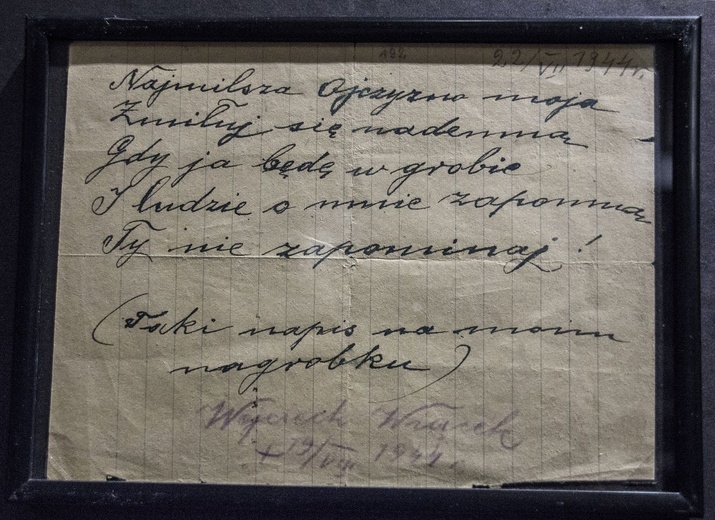 192 22/VII 1944 r.
Najmilsza Ojczyzno moja
Zmiłuj się nademną
Gdy ja będę w grobie
I ludzie o mnie zapomną
Ty nie zapominaj!
(Taki napis na moim
nagrobku)
Wojciech
+ 19/VIII 1944 r.